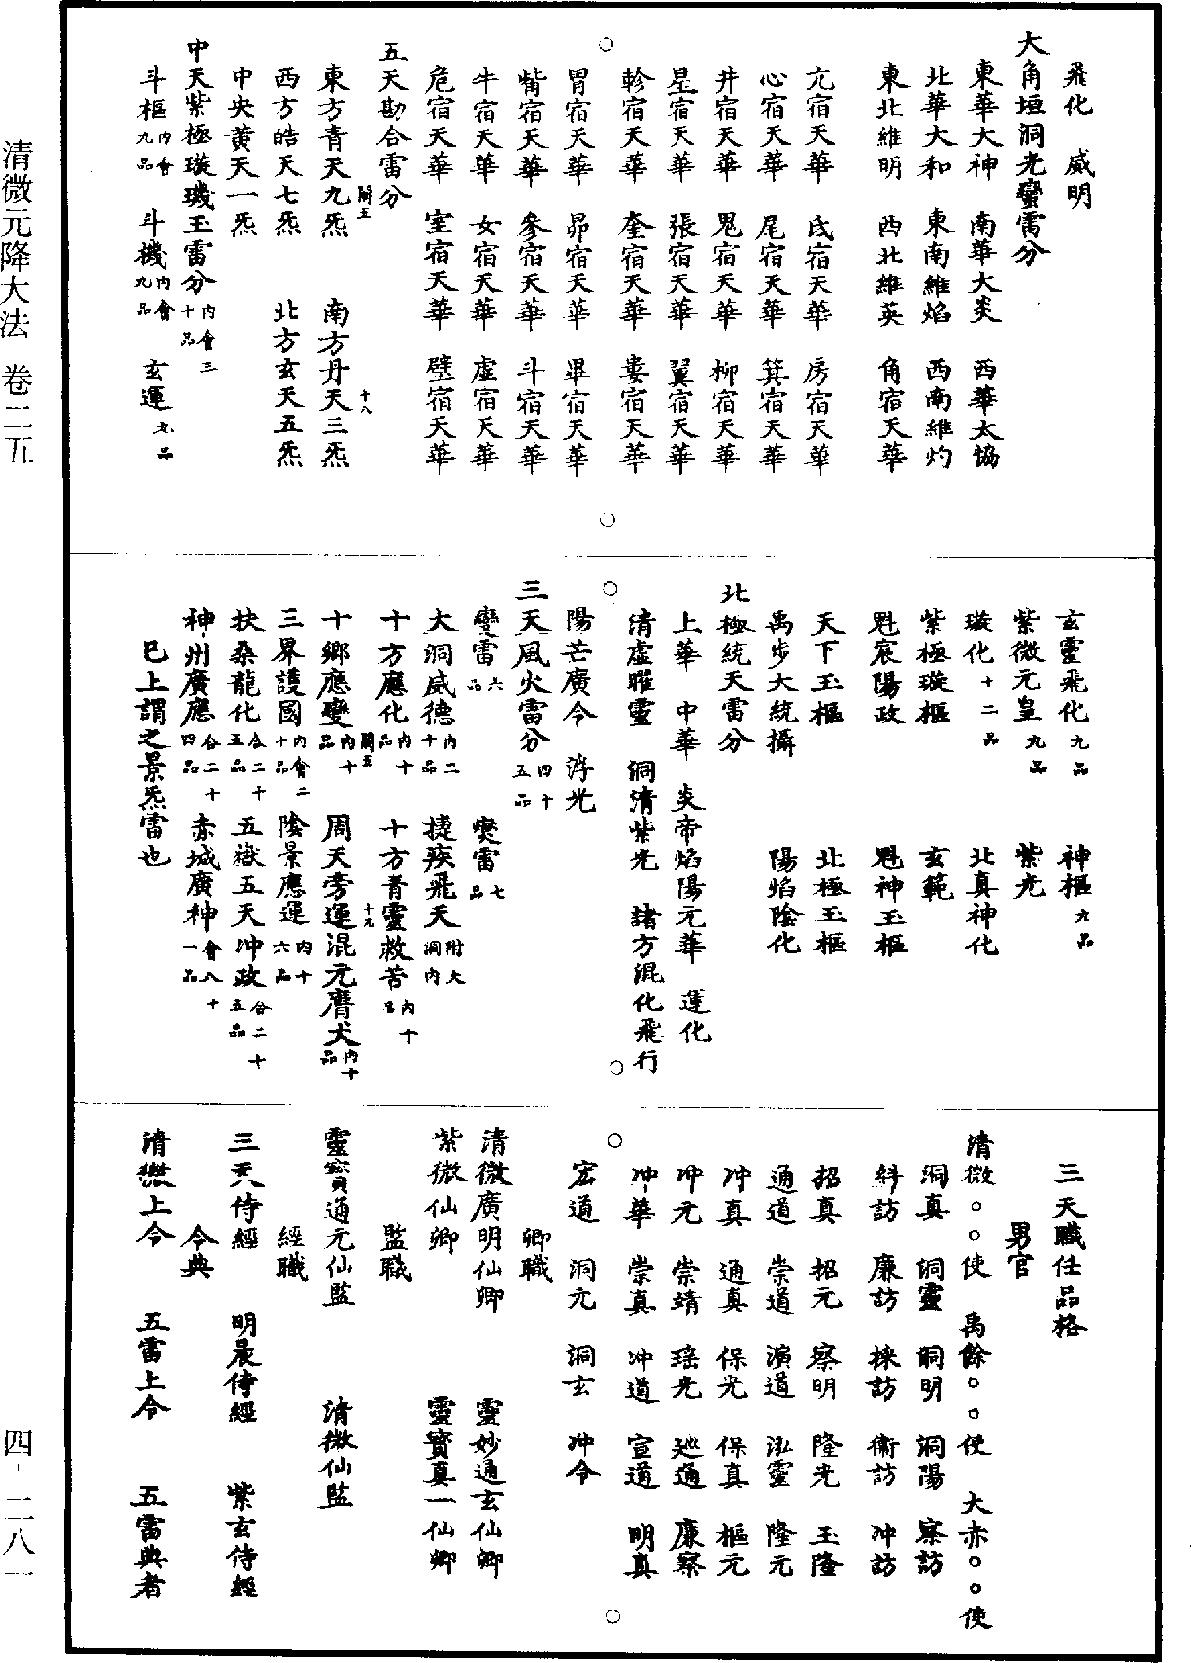 飛化　威明
大角垣洞光蠻雷分
東華大神　南華大炎　西華太協
北華大和　東南維焰　西南維灼
東北維明　西北維英　角宿天華
亢宿天華　氐宿天華　房宿天華
心宿天華　尾宿天華　箕宿天華
井宿天華　鬼宿天華　柳宿天華
星宿天華　張宿天華　翼宿天華
軫宿天華　奎宿天華　婁宿天華
胃宿天華　昴宿天華　畢宿天華
觜宿天華　參宿天華　斗宿天華
牛宿天華　女宿天華　虛宿天華
危宿天華　室宿天華　壁宿天華
五天勘合雷分 關五 十八
東方青天九炁　南方丹天三炁
西方皓天七炁　北方玄天五炁
中央黃天一炁
中天紫極璇璣玉雷分 內會三十品
斗樞 內會九品　斗機 內會九品　玄運 九品
玄靈飛化 九品　神樞 九品
紫微元皇 九品　紫光
璇化 十二品　北真神化
紫極璇樞　玄範
魁宸陽政　魁神玉樞
天下玉樞　北極玉樞
禹步大統攝　陽焰陰化
北極統天雷分
上華　中華　炎帝焰陽元華　運化
清虛曜靈　洞清紫光　諸方混化飛行
陽芒廣令　浮光
三天風火雷分 四十五品
變雷 六品　變雷 七品
大洞威德 內二十品　捷疾飛天 附大洞內
十方應化 內十品　十方青靈救苦 內十品
十鄉應變 內十品 關五　周天旁運混元膺犬 內十品 十九
三界護國 內會二十品　陰景應運 內十六品
扶桑龍化 合二十五品　五嶽五天沖政 合二十五品
神州廣應 合二十四品　赤城廣神 會八十一品
已上謂之景炁雷也
三天職任品格
男官
清微○○使　禹餘○○使　大赤○○使
洞真　洞靈　洞明　洞陽　察訪
糾訪　廉訪　採訪　衛訪　沖訪
招真　招元　察明　隆光　玉隆
通道　崇道　演道　泓靈　隆元
沖真　通真　保光　保真　樞元
沖元　崇靖　瑤光　通　廉察
沖華　崇真　沖道　宣道　明真
宏道　洞元　洞玄　沖令
卿職
清微廣明仙卿　靈妙通玄仙卿
紫微仙卿　靈寶真一仙卿
監職
靈寶通元仙監　清微仙監
經職
三天侍經　明晨侍經　紫玄侍經
令典
清微上令　五雷上令　五雷典者
清微元降大法　卷二五
四-二八一